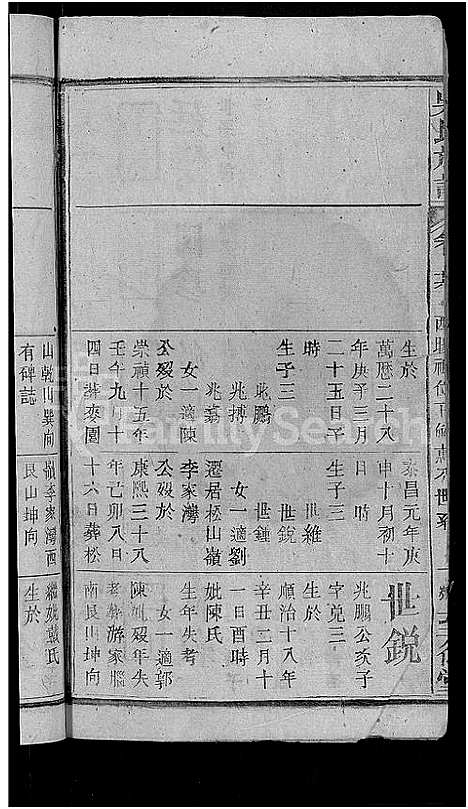 生於
萬曆二十八
年庚子三月
二十五日子
時
生子三
兆鵬
兆搏
兆
女一適陳
公歿於
崇禎十五年
壬午九月十
四日葬麥園
泰昌元年庚
申十月初十
日 時
生子三
世維
世銳
世鍾
女一適劉
遷居松山嶺
李家灣
公歿於
康熙三十八
年己卯八日
十六日葬松
世銳
兆鵬公次子
字兌三
生於
順治十八年
辛丑二月十
一日酉時
妣陳氏
生年失考
女一適郭
陳妣歿年失
考葬游家腦
南艮山坤向
山乾山巽向
有碑誌
嶺李家灣酉
艮山坤向
繼妣戴氏
生於
FamilySearch